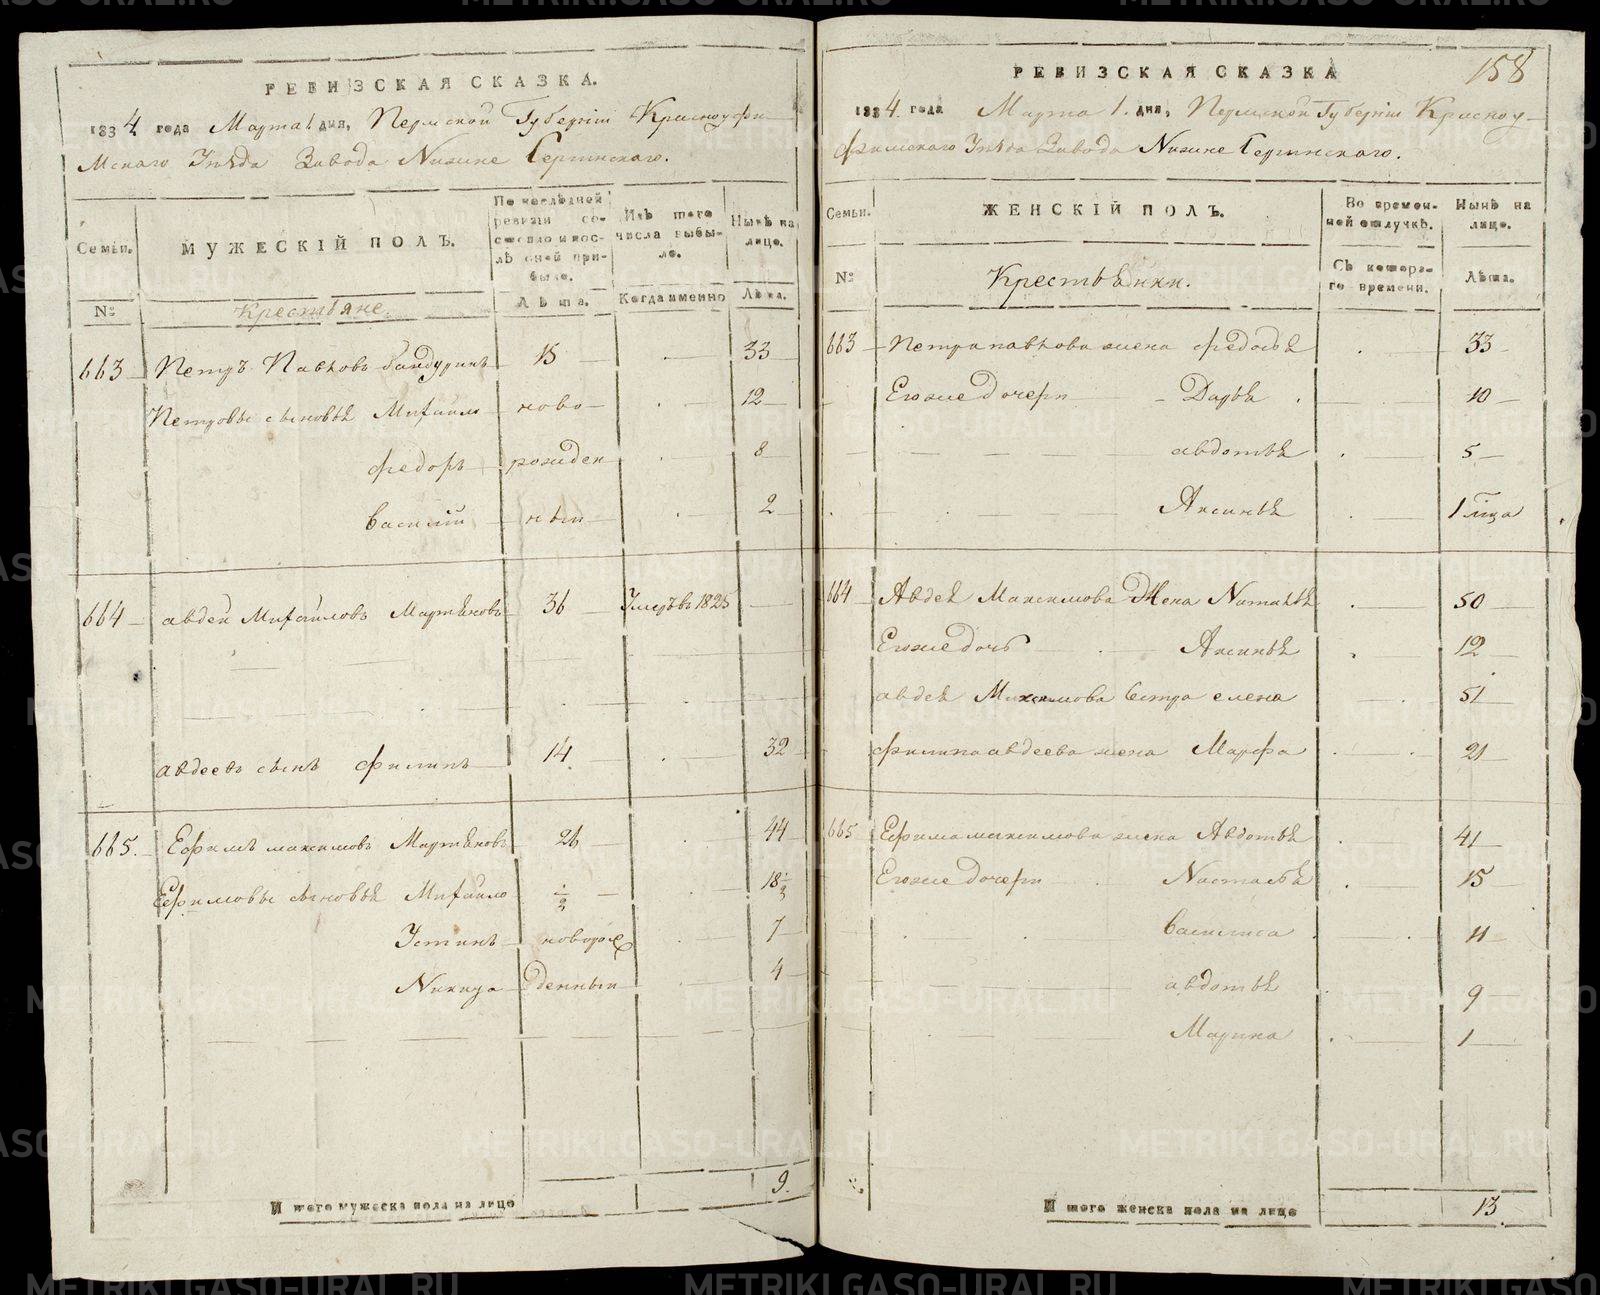 РЕВИЗСКАЯ СКАЗКА.
1834 года Марта 1 дня, Пермской Губернiи Красноуфи-
мскаго Уѣзда Завода Нижне Сергинскаго.
Семьи.
МУЖЕСКIЙ ПОЛЪ.
По послѣдней ревизiи состояло и послѣ оной прибыло.
Изъ того числа выбыло.
Нынѣ на лицо.
№
Крестьяне.
Лѣта.
Когда именно
Лѣта.
663 Петръ Павловъ Бандуринъ 15 33
Петровы сыновья Михайло ново 12
Федоръ рожден 8
Василiй ныи 2
664 Авдей Михайловъ Мартьяновъ 36 Умеръ въ 1825
Авдеевъ сынъ Филипъ 14 32
665. Ефимъ Максимовъ Мартьяновъ 26 44
Ефимовы сыновья Михайло 1/2 18 1/2
Устинъ новорож 7
Никита денныи 4
И того мужеска пола на лицо 9.
158
РЕВИЗСКАЯ СКАЗКА
1834. года Марта 1. дня, Пермской Губернiи Красноу-
фимскаго Уѣзда Завода Нижне Сергинскаго.
Семьи.
ЖЕНСКIЙ ПОЛЪ.
Во временной отлучкѣ.
Нынѣ на лицо.
№
Крестьянки.
Съ котораго времени.
Лѣта.
663 Петра Павлова жена Федосья 33
Его же дочери Дарья 10
Авдотья 5
Аксинья 1 мца
664 Авдея Максимова Жена Наталья 50
Его же дочь Аксинья 12
Авдея Максимова Сестра Елена 51
Филипа Авдеева жена Марфа 21
665 Ефима Максимова жена Авдотья 41
Его же дочери Настасья 15
Василиса 11
Авдотья 9
Марина 1
И того женска пола на лицо 13.
METRIKI.GASO-URAL.RU